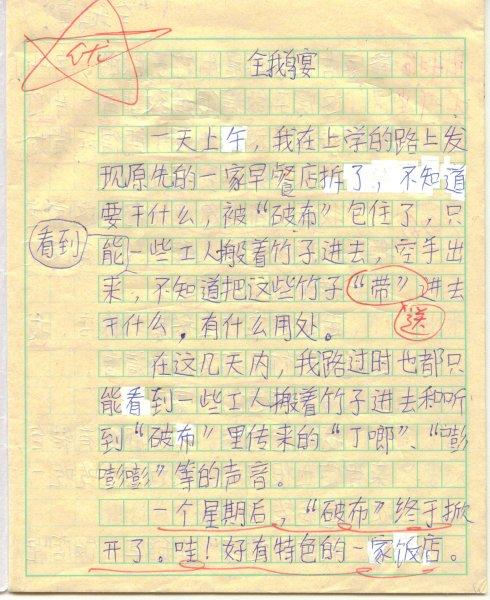 优
全鹅宴
一天上午，我在上学的路上发
现原先的一家早餐店拆了，不知道
要干什么，被“破布”包住了，只
看到
能一些工人搬着竹子进去，空手出
来，不知道把这些竹子“带”进去
送
干什么，有什么用处。
在这几天内，我路过时也都只
能看到一些工人搬着竹子进去和听
到“破布”里传来的“丁啷”、“嘭
嘭嘭”等的声音。
一个星期后，“破布”终于掀
开了。哇！好有特色的一家饭店。